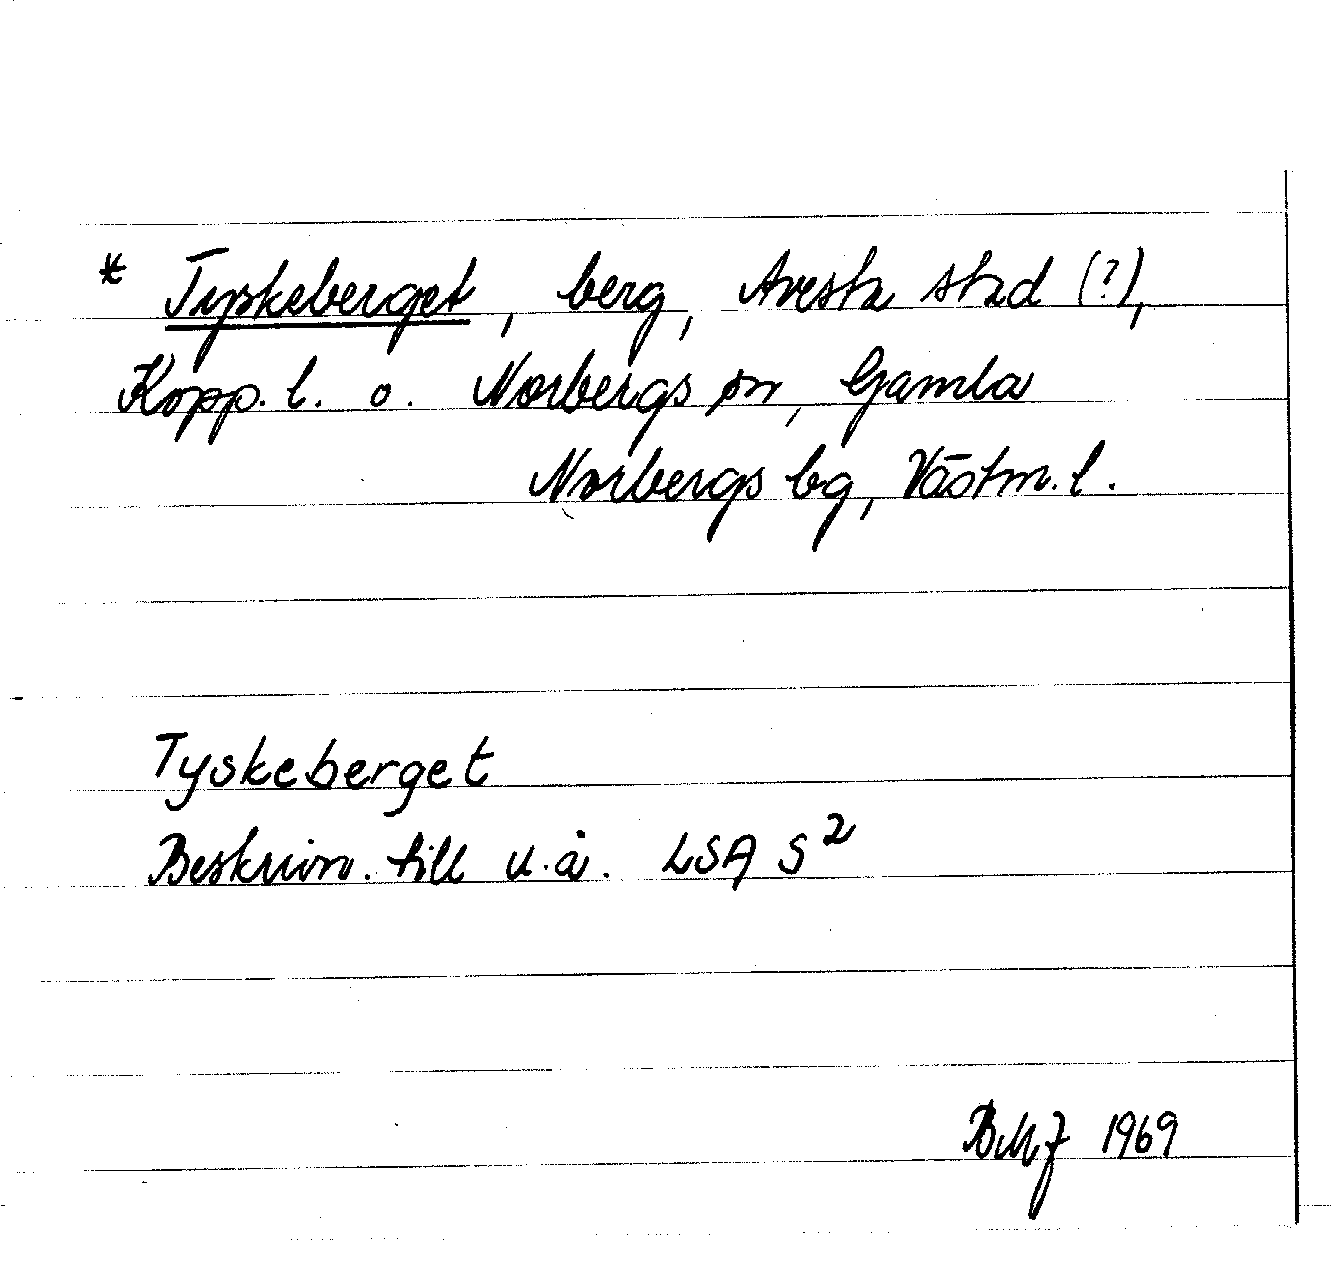 * Tyskeberget, berg, Avesta stad (?),
Kopp. l. o. Norbergs sn, Gamla
Norbergs bg, Västm. l.
Tyskeberget
Beskrivn. till u.å. LSA S²
BMJ 1969